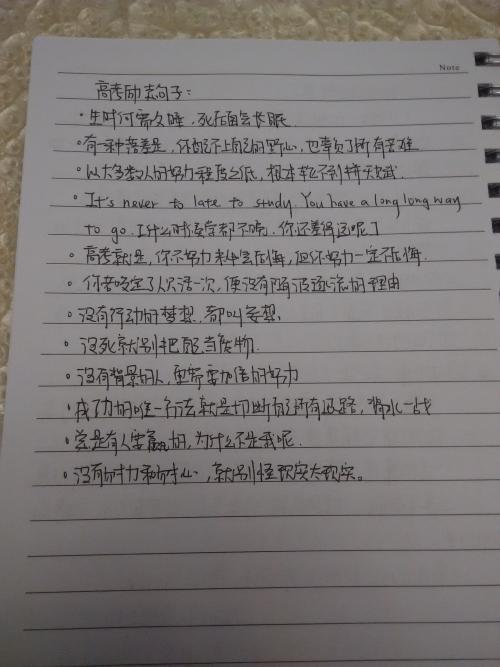 Note
高考励志句子:
·生时何需久睡,死后自会长眠
·有一种落差是,你配不上自己的野心,也辜负了所有苦难
·以大多数人的努力程度之低,根本轮不到拼天赋.
·It's never to late to study. You have a long long way
to go.(什么时候学都不晚,你还差得远呢)
·高考就是,你不努力未必会后悔,但你努力一定不后悔.
·你若咬定了人只活一次,便没有随波逐流的理由
·没有行动的梦想,都叫妄想.
·没死就别把自己当废物.
·没有背景的人,更需要加倍的努力
·成功的唯一方法就是切断自己所有退路,背水一战
·总是有人要赢的,为什么不是我呢.
·没有耐力和耐心,就别怪现实太现实。